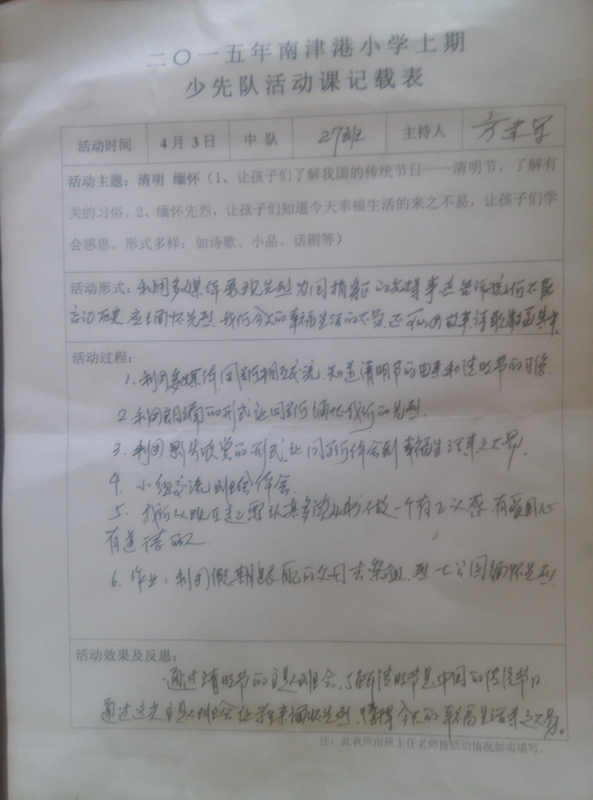 二〇一五年南津港小学上期
少先队活动课记载表
活动时间 4月3日 中队 273班 主持人
活动主题：清明 缅怀（1、让孩子们了解我国的传统节日——清明节，了解有
关的习俗。2、缅怀先烈，让孩子们知道今天幸福生活的来之不易，让孩子们学
会感恩。形式多样：如诗歌、小品、话剧等）
活动形式：利用多媒体展现先烈为国捐躯的光辉事迹告诉孩子们不能
忘记历史 缅怀先烈，我们今天的幸福生活的不易，还可以以故事，诗歌
活动过程：
1、利用多媒体，同学们相互交流，知道清明节的由来和清明节的习俗
2、利用朗诵的形式让同学们缅怀我们的先烈.
3、利用影片欣赏的形式，让同学们体会到幸福生活来之不易.
4、小组交流班会体会
5、我们从现在起要认真多读书，做一个有正义感，有爱国心
有道德的人
6、作业：利用假期跟爸妈去祭祖，烈士公园缅怀先烈.
活动效果及反思：
通过清明节的主题班会，了解清明节是中国的传统节日
通过这次主题班会让学生来缅怀先烈，懂得今天的幸福生活来之不易。
注：此表应由班主任老师按活动情况如实填写。